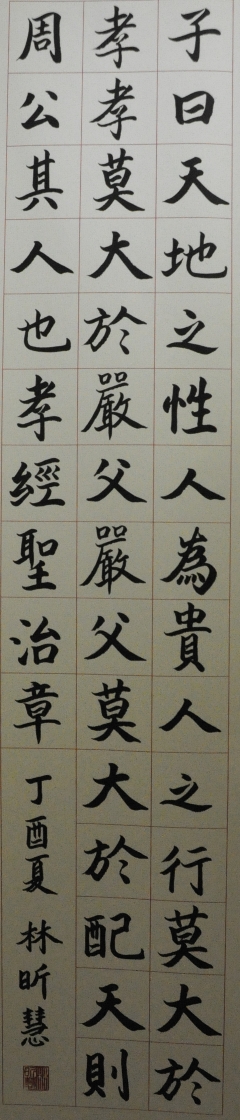 子曰天地之性人為貴人之行莫大於
孝孝莫大於嚴父嚴父莫大於配天則
周公其人也孝經聖治章
丁酉夏 林昕慧